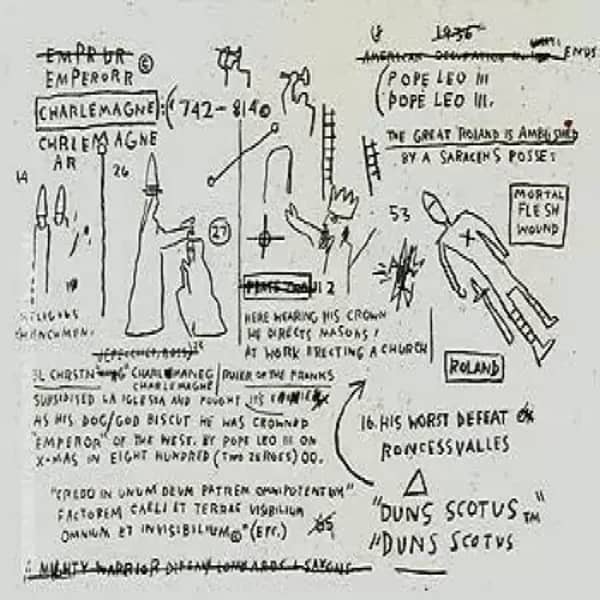 EMPRUR
EMPERORR ©
CHARLEMAGNE : (742-8140
CHRLEMAGNE
AR
1936
AMERICAN OCCUPATION ENDS
(POPE LEO III
POPE LEO III.
THE GREAT ROLAND IS AMBUSHED
BY A SARACENS POSSE:
14
26
27
53
MORTAL
FLESH
WOUND
2
HERE WEARING HIS CROWN
HE DIRECTS MASONS
AT WORK ERECTING A CHURCH
ROLAND
CHARLEMANEG
CHARLEMAGNE
RULER OF THE FRANKS
SUBSIDISED LA IGLESIA AND FOUGHT ITS
AS HIS DOG/GOD BISCUT HE WAS CROWNED
"EMPEROR" OF THE WEST. BY POPE LEO III ON
X-MAS IN EIGHT HUNDRED (TWO ZEROES) 00.
"CREDO IN UNUM DEUM PATREM OMNIPOTENTUM"
FACTOREM CAELI ET TERRAE VISIBILIUM
OMNIUM ET INVISIBILIUM©" (ETC.) 65
16. HIS WORST DEFEAT @
RONCESSVALLES
"DUNS SCOTUS"™
"DUNS SCOTUS
MIGHTY WARRIOR DEFEAT LOMBARDS & SAXONS